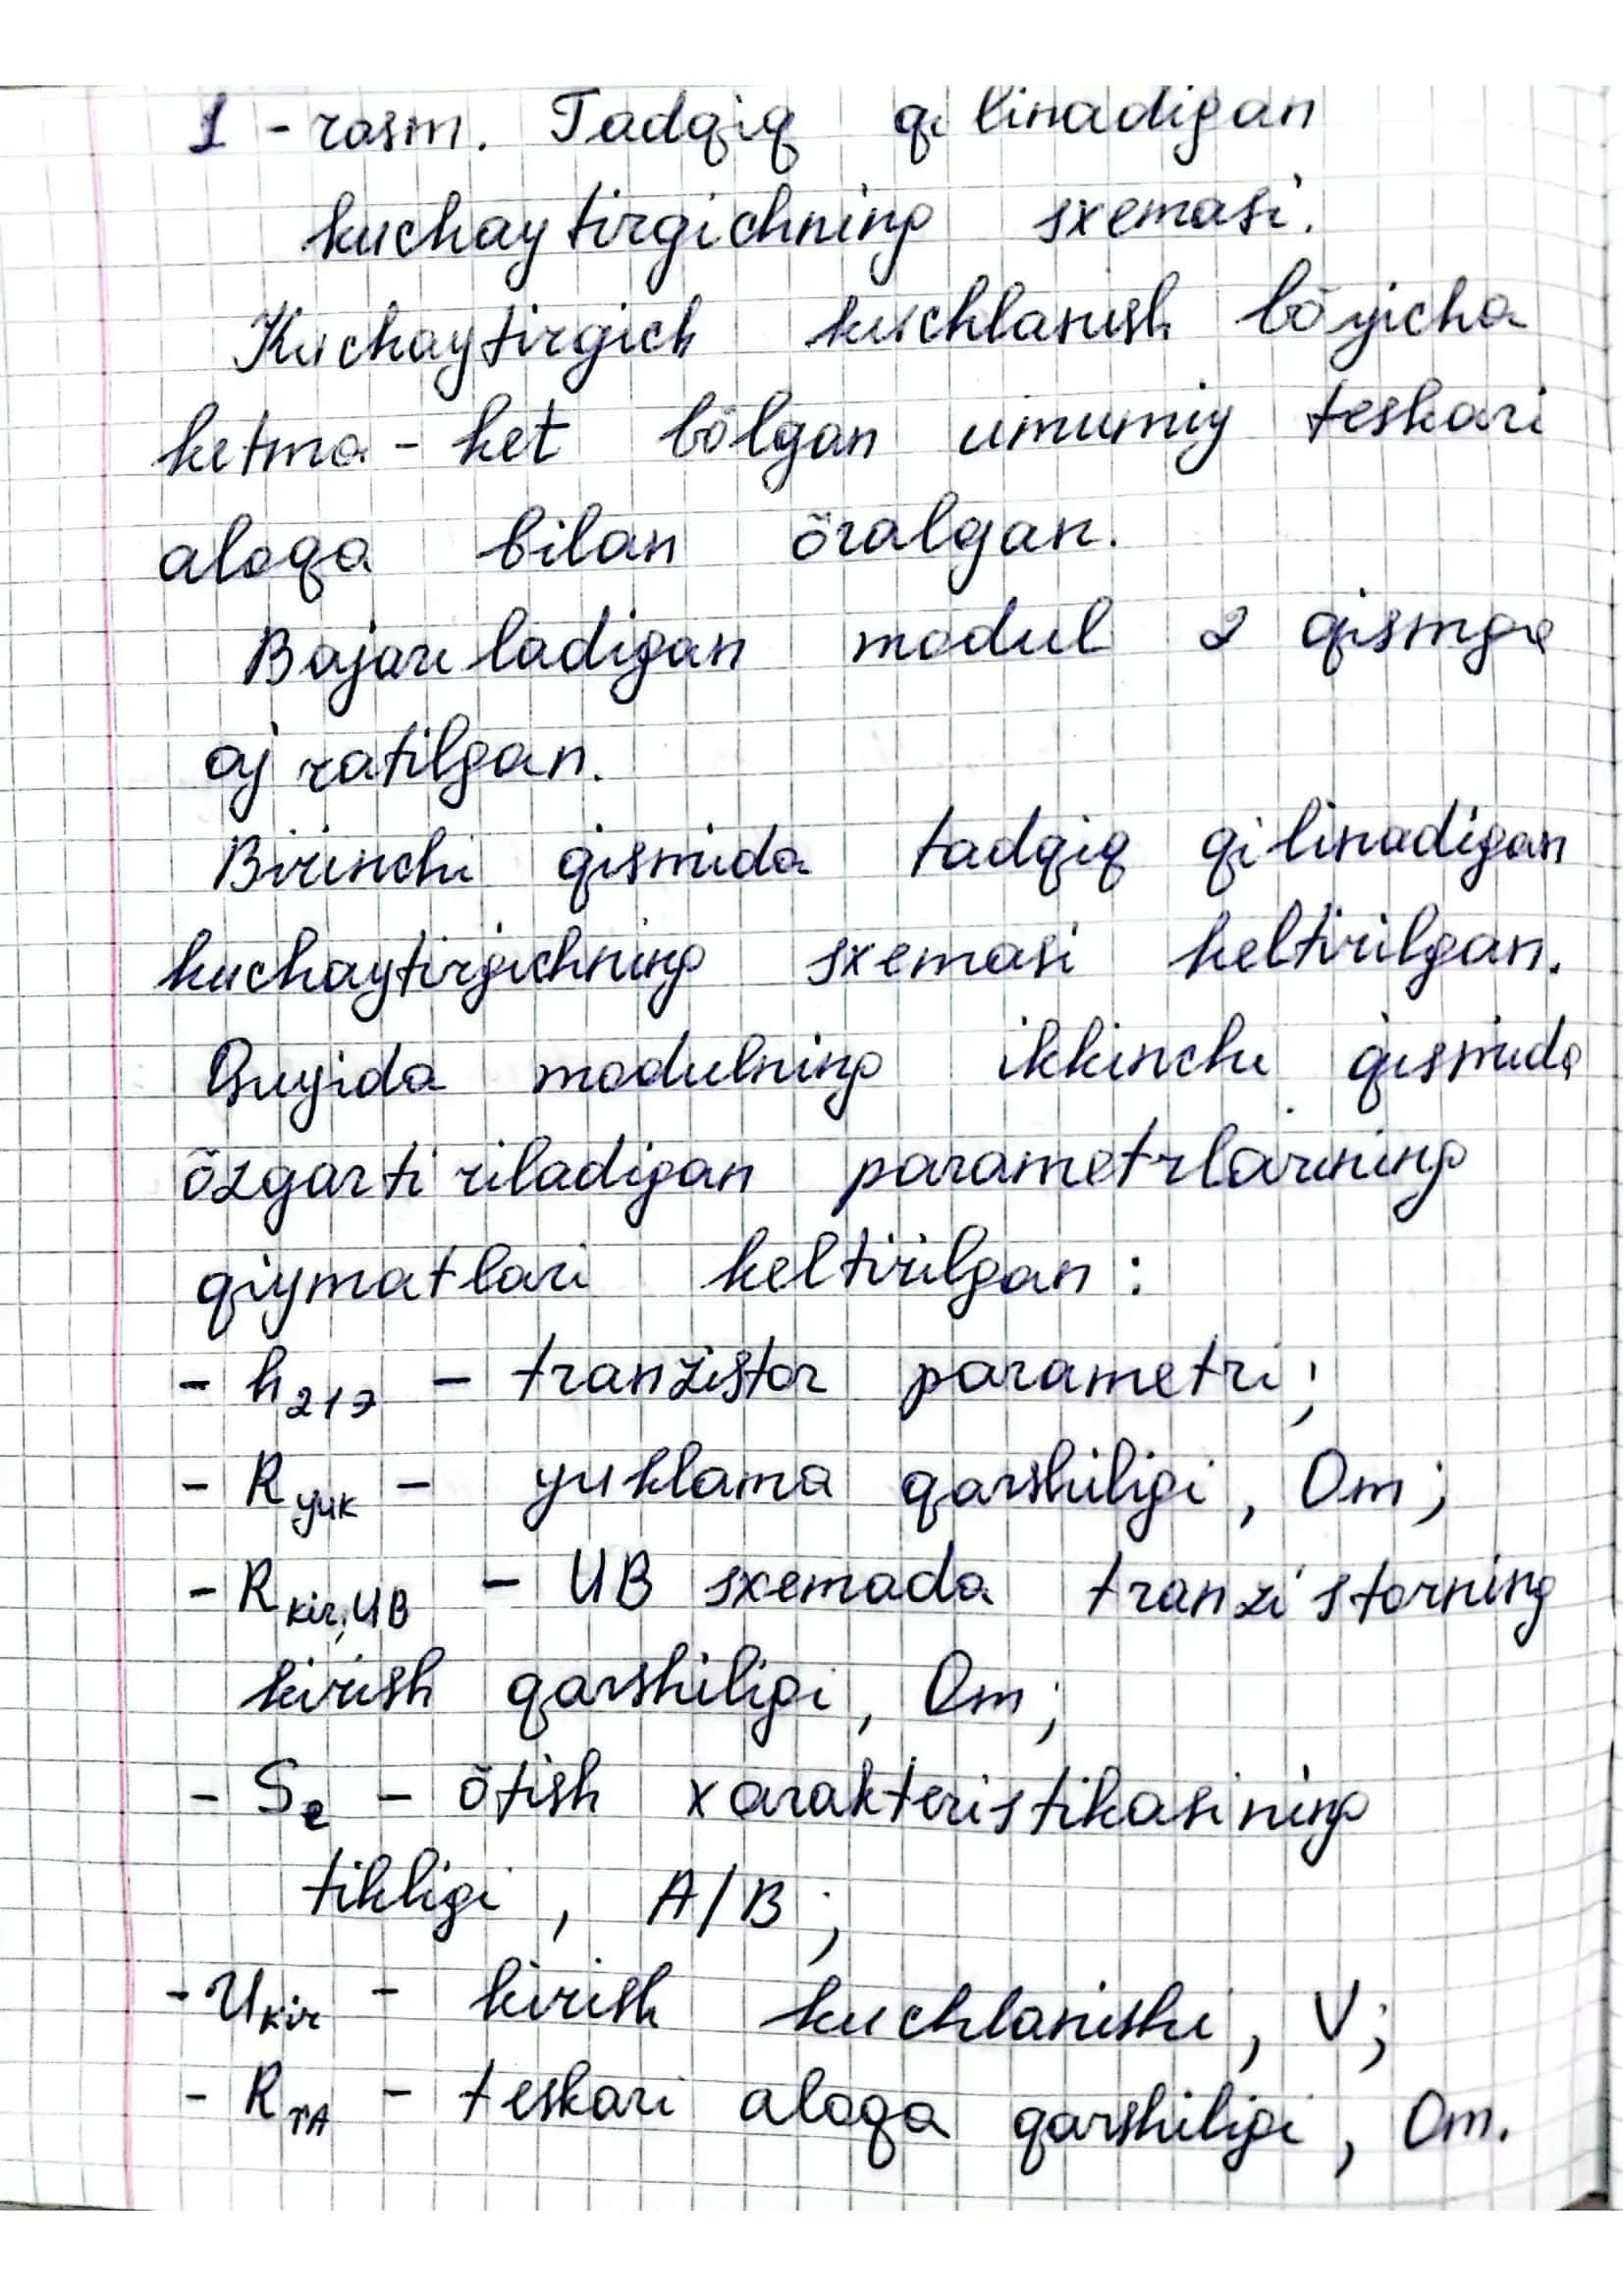 1 - rasm. Tadqiq qilinadigan
kuchaytirgichning sxemasi.
Kuchaytirgich kuchlanish bõyicha
ketma - ket bõlgan umumiy teskari
aloqa bilan õralgan.
Bajariladigan modul 2 qismga
ajratilgan.
Birinchi qismida tadqiq qilinadigan
kuchaytirgichning sxemasi keltirilgan.
Quyida modulning ikkinchi qismida
õzgartiriladigan parametrlarining
qiymatlari keltirilgan :
- h₂₁э - tranzistor parametri ;
- Ryuk - yuklama qarshiligi , Om ;
- Rkir,UB - UB sxemada tranzistorning
kirish qarshiligi , Om ;
- Se - õtish xarakteristikasining
tikligi , A/B ;
- Ukir - kirish kuchlanishi , V ;
- RTA - teskari aloqa qarshiligi , Om.